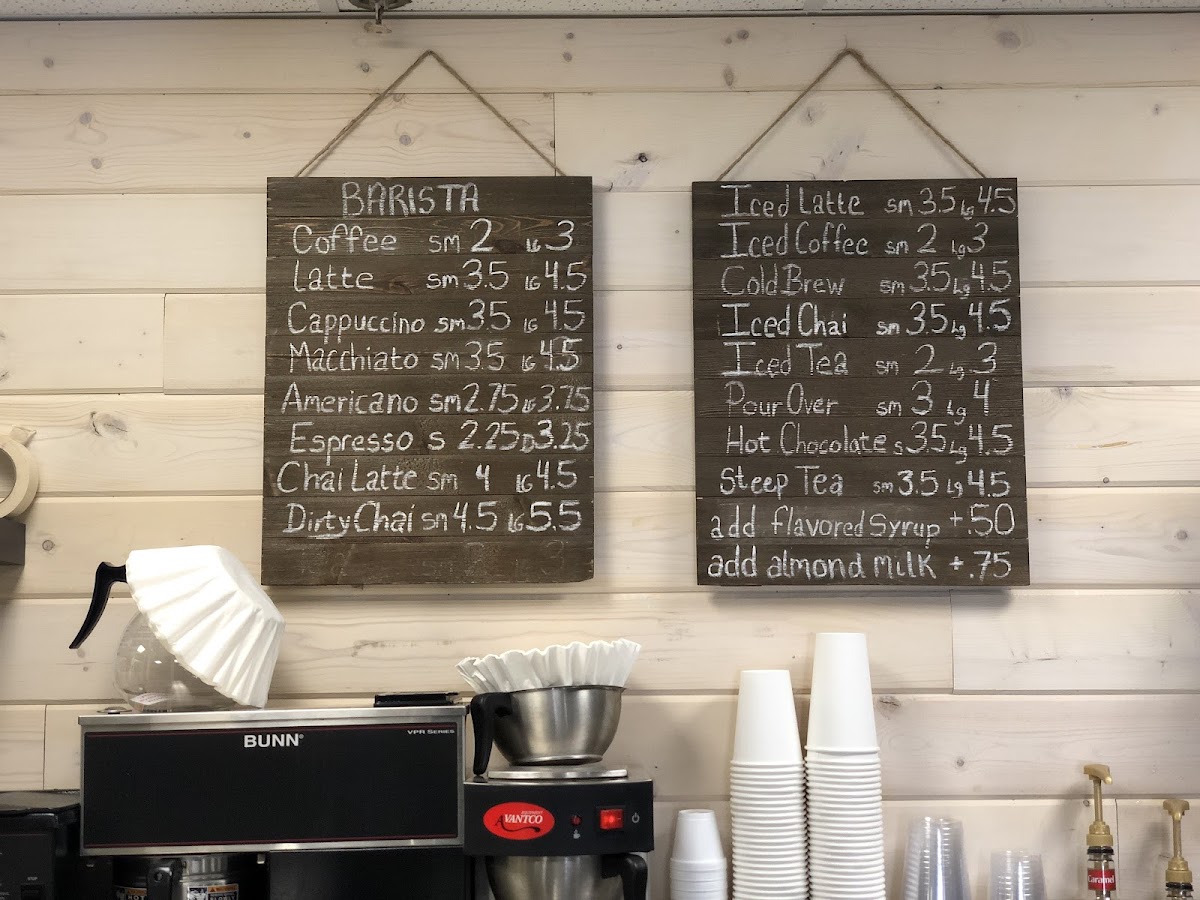 BARISTA
Coffee sm 2 LG 3
Latte sm 3.5 LG 4.5
Cappuccino sm 3.5 LG 4.5
Macchiato sm 3.5 LG 4.5
Americano sm 2.75 LG 3.75
Espresso s 2.25 D 3.25
Chai Latte sm 4 LG 4.5
Dirty Chai sm 4.5 LG 5.5
Iced Latte sm 3.5 Lg 4.5
Iced Coffee sm 2 Lg 3
Cold Brew sm 3.5 Lg 4.5
Iced Chai sm 3.5 Lg 4.5
Iced Tea sm 2 Lg 3
Pour Over sm 3 Lg 4
Hot Chocolate s 3.5 Lg 4.5
Steep Tea sm 3.5 Lg 4.5
add flavored Syrup +.50
add almond milk +.75
BUNN®
VPR SERIES
AVANTCO
Caramel